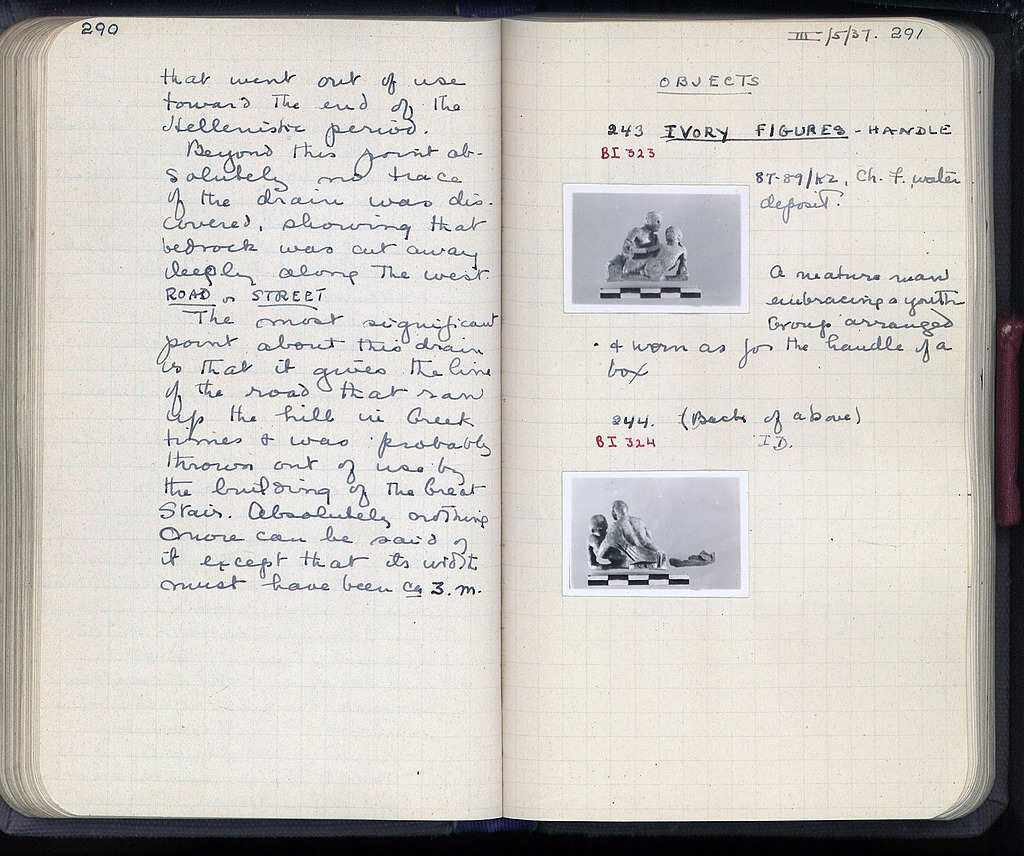 290
that went out of use
toward the end of the
Hellenistic period.
Beyond this point ab-
solutely no trace
of the drain was dis-
covered, showing that
bedrock was cut away
deeply along the west
ROAD or STREET
The most significant
point about this drain
is that it gives the line
of the road that ran
up the hill in Greek
times & was probably
thrown out of use by
the building of the Great
Stair. Absolutely nothing
more can be said of
it except that its width
must have been ca 3. m.
III/5/37. 291
OBJECTS
243 IVORY FIGURES - HANDLE
BI 323
87-89/K2, Ch. F, water
deposit.
A mature man
embracing a youth
Group arranged
& worn as for the handle of a
box
244. (Back of above)
BI 324 I D.